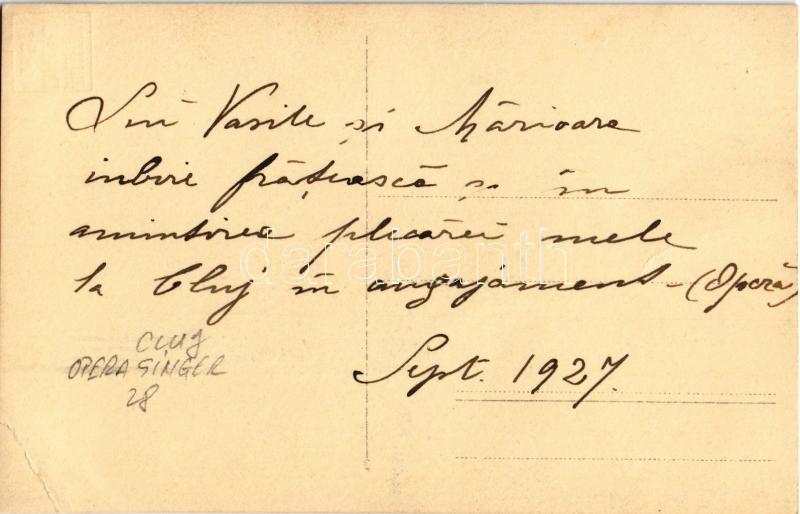 Lui Vasile și Mărioara
iubire frățească și în
amintirea plecării mele
la Cluj în angajament - (Operă)
Sept. 1927.
darabanth
Cluj
OPERA SINGER
28